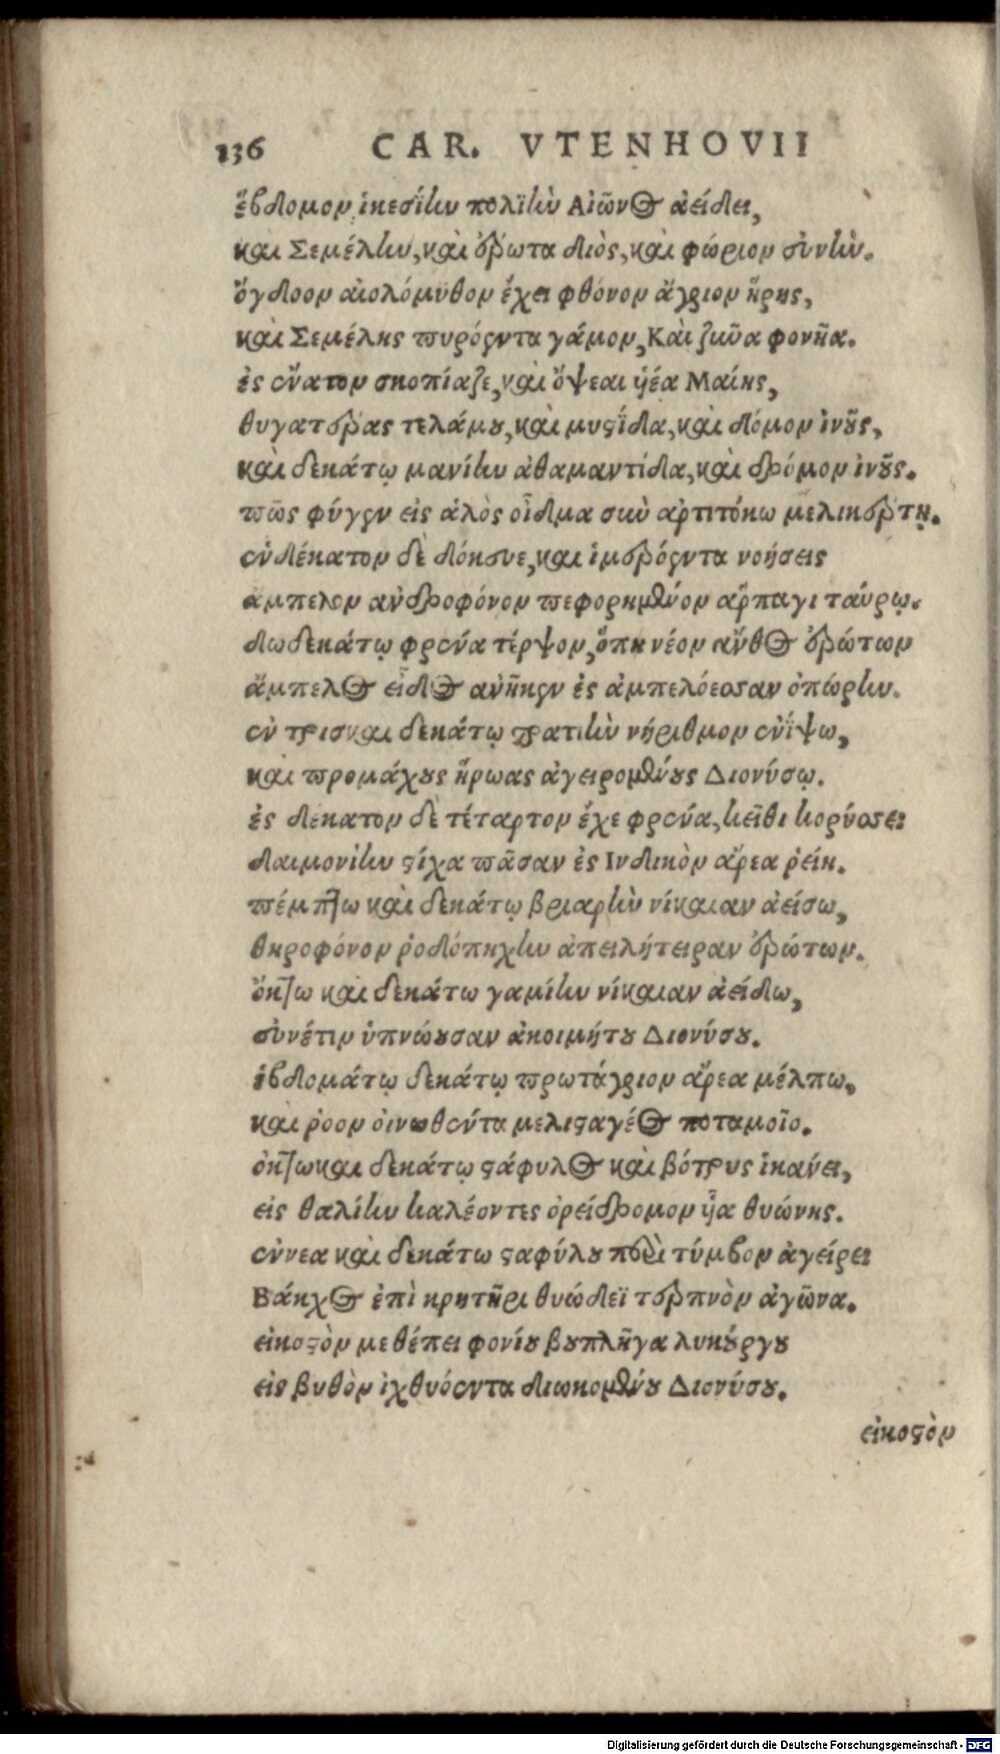 136 CAR. VTENHOVII
ἕβδομον ἱκεσίην πολιὴν Αἰῶνος ἀείδει,
καὶ Σεμέλην, καὶ ἔρωτα διὸς, καὶ φώριον εὐνὴν.
ὄγδοον αἰολόμυθον ἔχει φθόνον ἄγριον ἥρης,
καὶ Σεμέλης πυρόεντα γάμον, Καὶ ζῆνα φονῆα.
ἐς ἔνατον σκοπίαζε, καὶ ὄψεαι ὑέα Μαίης,
θυγατέρας τε λάμου, καὶ μυστίδα, καὶ δόμον ἰνοῦς,
καὶ δεκάτῳ μανίην ἀθαμαντίδα, καὶ δρόμον ἰνοῦς.
πῶς φύγεν εἰς ἁλὸς οἶδμα σὺν ἀρτιτόκω μελικέρτῃ.
ἑνδέκατον δὲ δόκευε, καὶ ἱμερόεντα νοήσεις
ἄμπελον ἀνδροφόνον πεφορημένον ἅρπαγι ταύρῳ.
δωδεκάτῳ φρένα τέρψον, ὅπη νέον ἄνθος ἐρώτων
ἄμπελος εἶδος ἀνῆκεν ἐς ἀμπελόεσσαν ὀπώρην.
ἐν τρισκαι δεκάτῳ στρατιὴν νήριθμον ἐνίψω,
καὶ προμάχους ἥρωας ἀγειρομένους Διονύσῳ.
ἐς δέκατον δὲ τέταρτον ἔχε φρένα, κεῖθι κορύσσει
δαιμονίην στίχα πᾶσαν ἐς Ινδικὸν ἄρεα ῥείη.
πέμπτω καὶ δεκάτῳ βριαρὴν νίκαιαν ἀείσω,
θηροφόνον ῥοδόπηχην ἀπειλήτειραν ἐρώτων.
ὄκτω καὶ δεκάτω γαμίην νίκαιαν ἀείδω,
συνέτιν ὑπνώουσαν ἀκοιμήτου Διονύσου.
ἑβδομάτῳ δεκάτῳ πρωτάγριον ἄρεα μέλπω,
καὶ ῥοον οἰνωθέντα μελισταγέος ποταμοῖο.
ὀκτωκαι δεκάτῳ στάφυλος καὶ βότρυς ἱκάνει,
εἰς θαλίην καλέοντες ὀρείδρομον ἷα θυώνης.
ἐννεα καὶ δεκάτω σταφύλου περὶ τύμβον ἀγείρει
Βάκχος ἐπὶ κρητῆρι θυώδεϊ τερπνὸν ἀγῶνα.
εἰκοστὸν μεθέπει φονίου βουπλῆγα λυκούργου
εἰς βυθὸν ἰχθυόεντα διωκομένου Διονύσου.
εἰκοστὸν
Digitalisierung gefördert durch die Deutsche Forschungsgemeinschaft - DFG